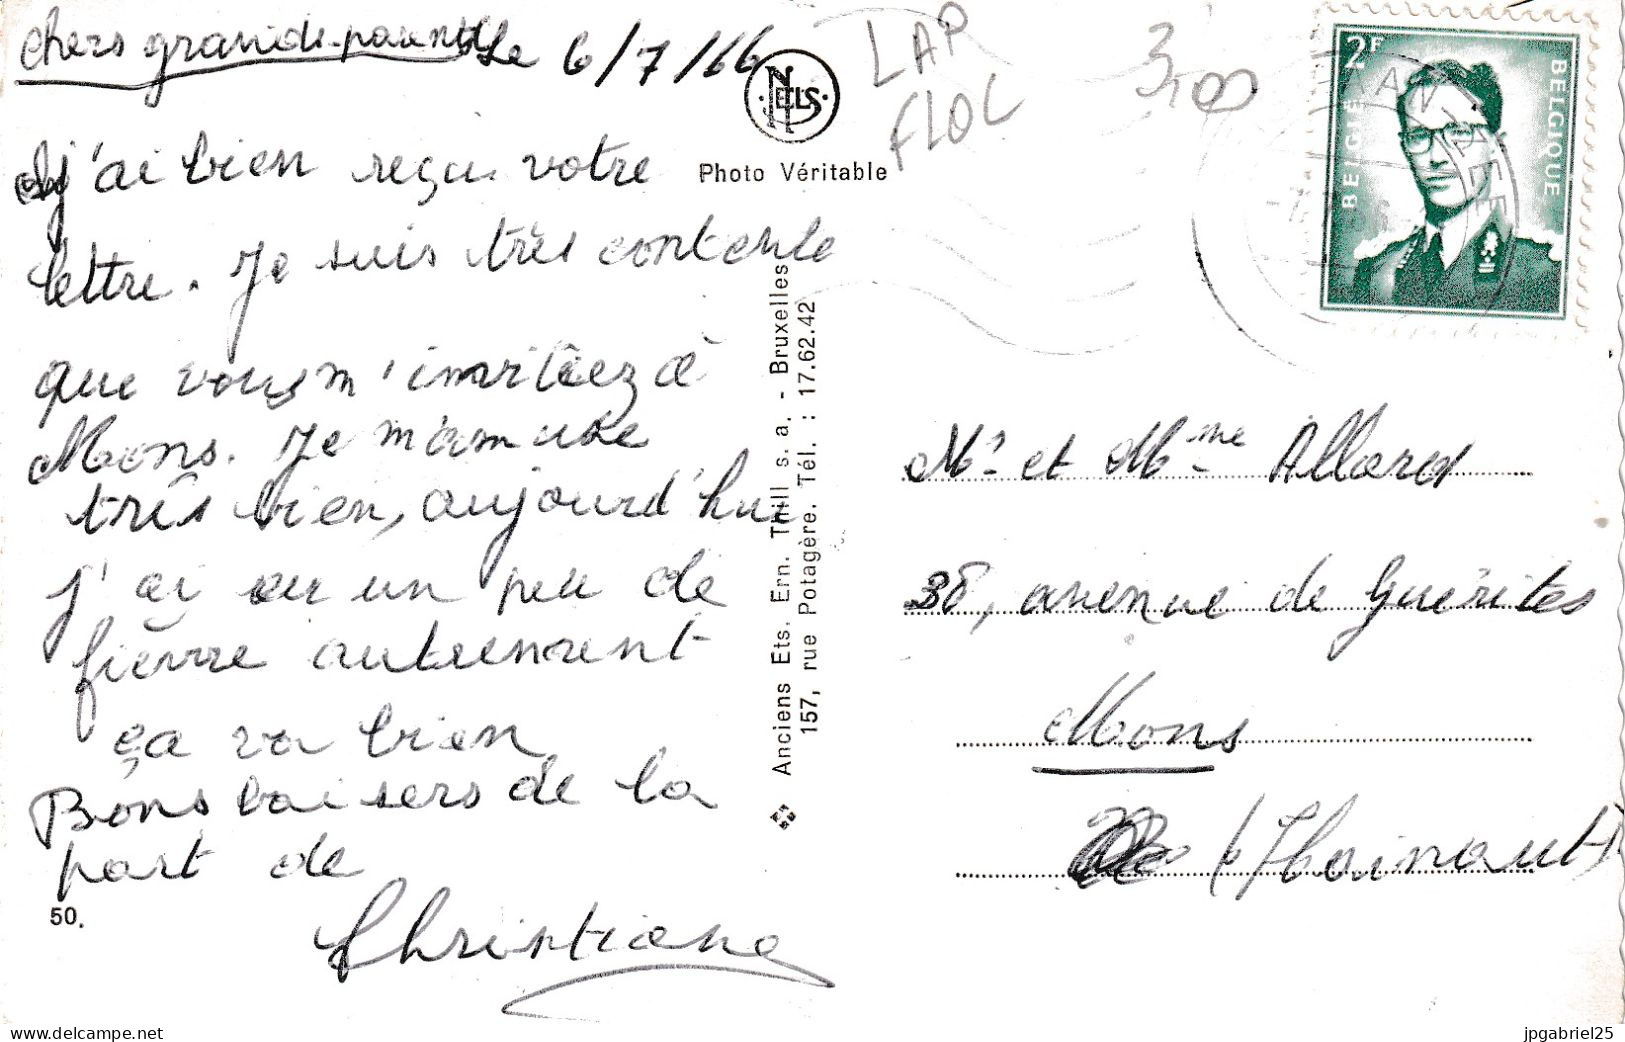 Chers grands-parents Le 6/7/66
j'ai bien reçu votre
lettre. Je suis très contente
que vous m'invitiez à
Mons. Je m'amuse
très bien, aujourd'hui
j'ai eu un peu de
fièvre autrement
ça va bien
Bons baisers de la
part de
Christiane
50.
NELS
Photo Véritable
Anciens Ets. Ern. Thill s. a. - Bruxelles
157, rue Potagère. Tél. : 17.62.42
LAP
FLOL
3,00
2F
BELGIË
BELGIQUE
Mr et Mme Allard
38, avenue de Guérites
Mons
(Hainaut)
www.delcampe.net
jpgabriel25